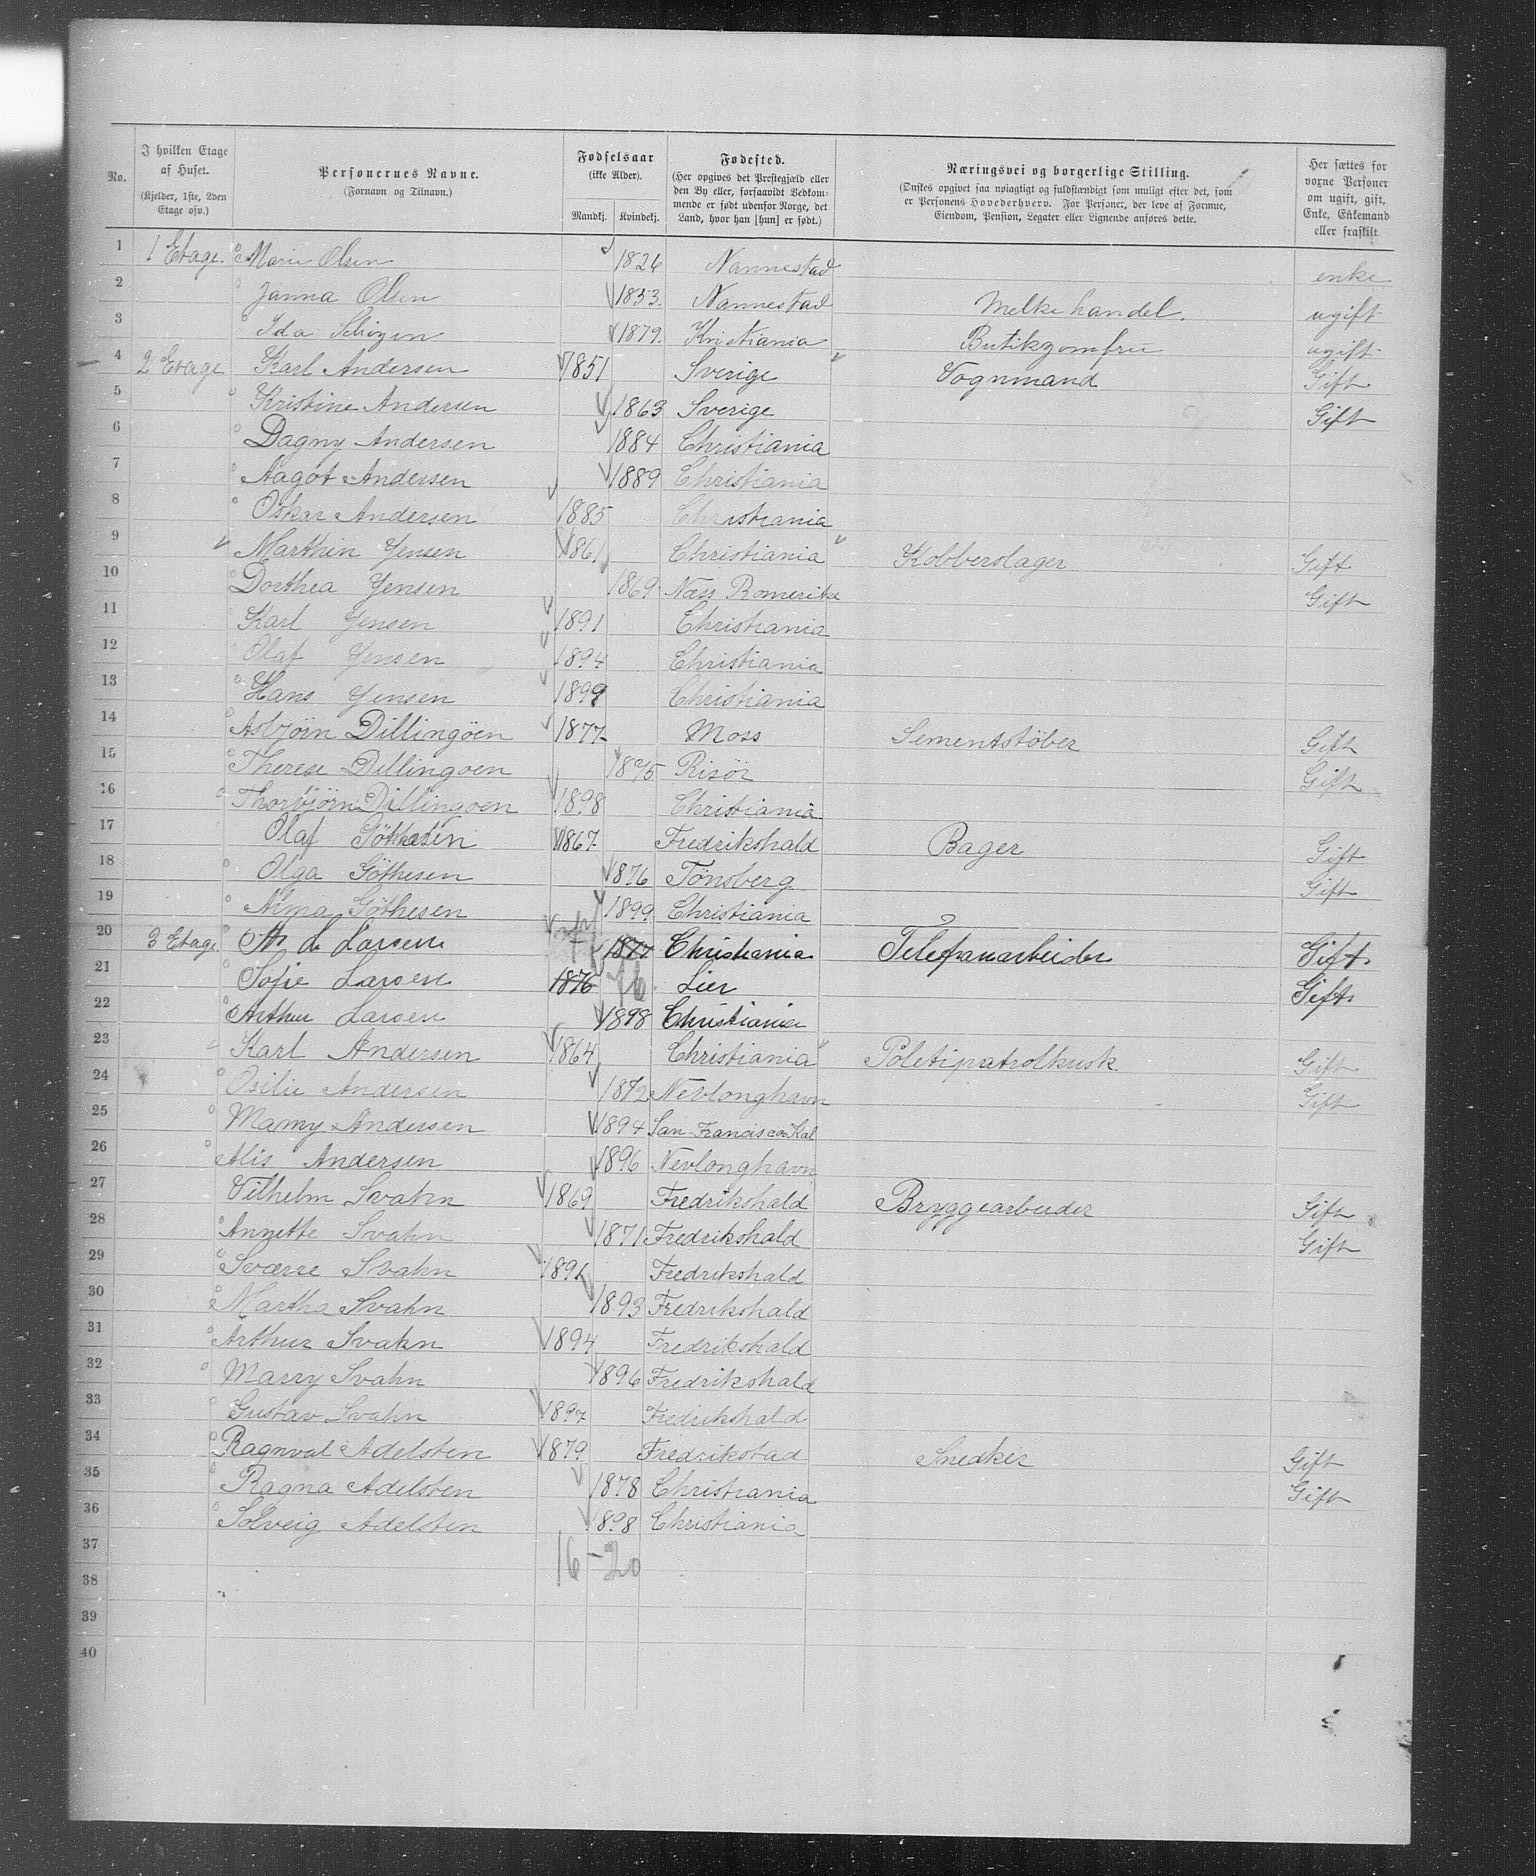 No. | I hvilken Etage af Huset. (Kjelder, 1ste, 2den Etage osv.) | Personernes Navne. (Fornavn og Tilnavn.) | Fødselsaar (ikke Alder). Mandkj. Kvindekj. | Fødested. (Her opgives det Prestegjæld eller den By eller, forsaavidt Vedkommende er født udenfor Norge, det Land, hvor han [hun] er født.) | Næringsvei og borgerlige Stilling. (Ønskes opgivet saa nøiagtigt og fuldstændigt som muligt efter det, som er Personens Hovederhverv. For Personer, der leve af Formue, Eiendom, Pension, Legater eller Lignende anføres dette. | Her sættes for voxne Personer om ugift, gift, Enke, Enkemand eller fraskilt.
1 1 Etage. Marie Olsen 1826 Nannestad enke
2 Janna Olsen 1853. Nannestad Melkehandel. ugift
3 Ida 1879. Kristiania Butikjomfru ugift
4 2 Etage Karl Andersen 1851 Sverige Vognmand Gift
5 Kristine Andersen 1863 Sverige Gift
6 Dagny Andersen 1884 Christiania
7 Aagot Andersen 1889 Christiania
8 Oskar Andersen 1885 Christiania
9 Marthin Jensen 1861 Christiania Kobberslager Gift
10 Dorthea Jensen 1869 Næss Romerike Gift
11 Karl Jensen 1891 Christiania
12 Olaf Jensen 1894 Christiania
13 Hans Jensen 1899 Christiania
14 Asbjörn Dillingöen 1877 Moss Sementstöber Gift
15 Therese Dillingoen 1875 Risör Gift
16 Thorbjörn Dillingoen 1898 Christiania
17 Olaf Göthesen 1867 Fredrikshald Bager Gift
18 Olga Göthesen 1876 Tönsberg Gift
19 Alma Göthesen 1899 Christiania
20 3 Etage Larsen 1877 Christiania Telefonarbeider Gift.
21 Sofie Larsen 1876 76. Lier Gift.
22 Arthur Larsen 1898 Christiania
23 Karl Andersen 1864 Christiania Politipatrolkusk Gift
24 Osilie Andersen 1872 Nevlonghavn Gift
25 Mamy Andersen 1894 San Francisco Kal
26 Alis Andersen 1896 Nevlonghavn
27 Vilhelm Svahn 1869 Fredrikshald Bryggearbeider Gift
28 Annette Svahn 1871 Fredrikshald Gift
29 Sværre Svahn 1891 Fredrikshald
30 Martha Svahn 1893 Fredrikshald
31 Arthur Svahn 1894 Fredrikshald
32 Marry Svahn 1896 Fredrikshald
33 Gustav Svahn 1897 Fredrikshald
34 Ragnval Adelsten 1879 Fredrikstad Snedker Gift
35 Ragna Adelsten 1878 Christiania Gift
36 Solveig Adelsten 1898 Christiania
37 16-20
38
39
40